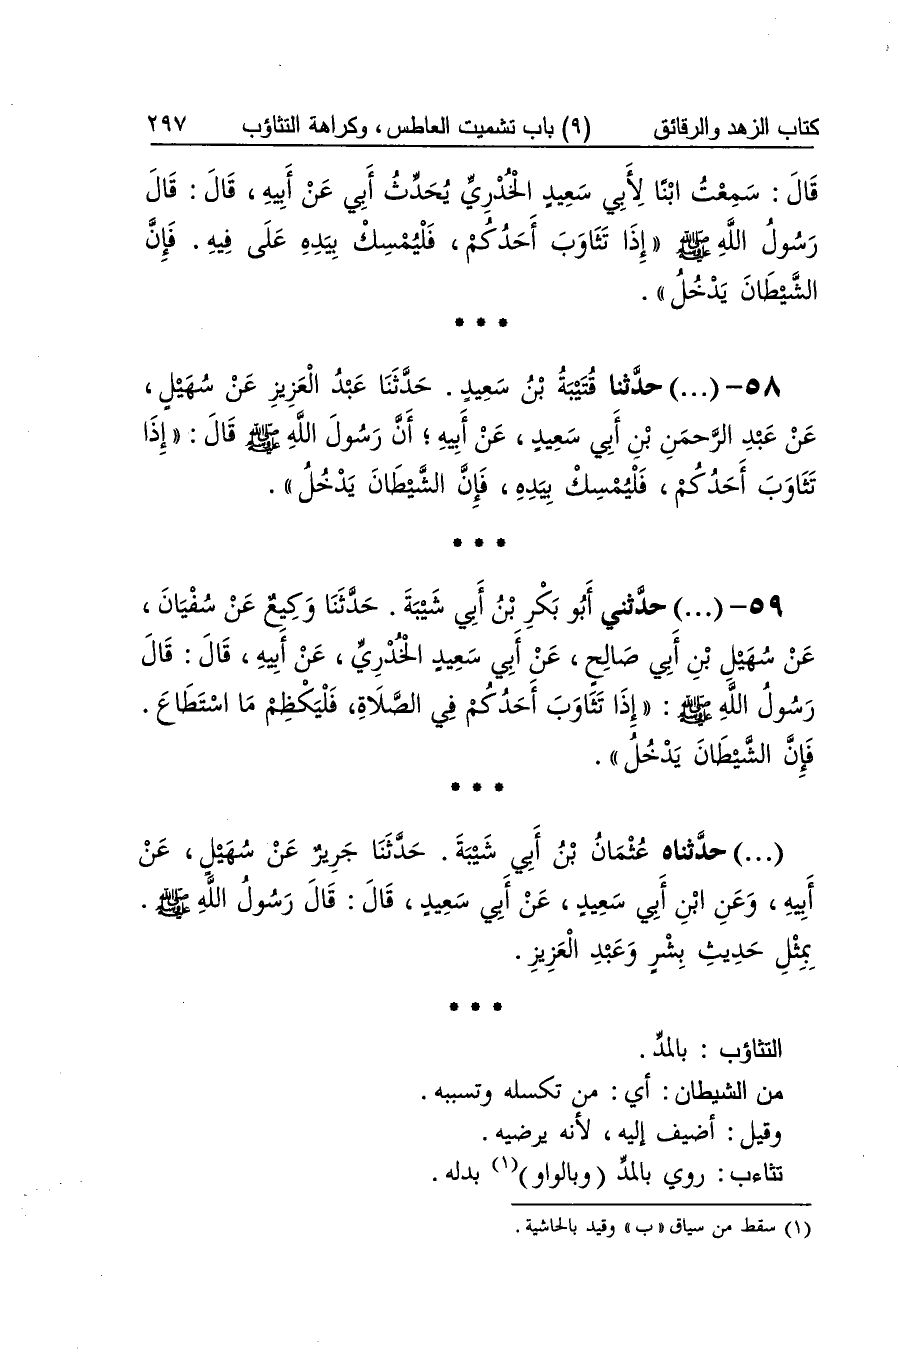 كتاب الزهد والرقائق (٩) باب تشميت العاطس، وكراهة التثاؤب ٢٩٧
قَالَ : سَمِعْتُ ابْنًا لِأَبِي سَعِيدٍ الْخُدْرِيِّ يُحَدِّثُ أَبِي عَنْ أَبِيهِ ، قَالَ : قَالَ
رَسُولُ اللَّهِ ﷺ « إِذَا تَثَاوَبَ أَحَدُكُمْ ، فَلْيُمْسِكْ بِيَدِهِ عَلَى فِيهِ . فَإِنَّ
الشَّيْطَانَ يَدْخُلُ » .
* * *
٥٨- (...) حدَّثنا قُتَيْبَةُ بْنُ سَعِيدٍ . حَدَّثَنَا عَبْدُ الْعَزِيزِ عَنْ سُهَيْلٍ ،
عَنْ عَبْدِ الرَّحمَنِ بْنِ أَبِي سَعِيدٍ ، عَنْ أَبِيهِ ؛ أَنَّ رَسُولَ اللَّهِ ﷺ قَالَ : « إِذَا
تَثَاوَبَ أَحَدُكُمْ ، فَلْيُمْسِكْ بِيَدِهِ ، فَإِنَّ الشَّيْطَانَ يَدْخُلُ » .
* * *
٥٩- (...) حدَّثني أَبُو بَكْرِ بْنُ أَبِي شَيْبَةَ . حَدَّثَنَا وَكِيعٌ عَنْ سُفْيَانَ ،
عَنْ سُهَيْلِ بْنِ أَبِي صَالِحٍ ، عَنْ أَبِي سَعِيدٍ الْخُدْرِيِّ ، عَنْ أَبِيهِ ، قَالَ : قَالَ
رَسُولُ اللَّهِ ﷺ : « إِذَا تَثَاوَبَ أَحَدُكُمْ فِي الصَّلَاةِ، فَلْيَكْظِمْ مَا اسْتَطَاعَ .
فَإِنَّ الشَّيْطَانَ يَدْخُلُ » .
* * *
(...) حدَّثناه عُثْمَانُ بْنُ أَبِي شَيْبَةَ . حَدَّثَنَا جَرِيرٌ عَنْ سُهَيْلٍ ، عَنْ
أَبِيهِ ، وَعَنِ ابْنِ أَبِي سَعِيدٍ ، عَنْ أَبِي سَعِيدٍ ، قَالَ : قَالَ رَسُولُ اللَّهِ ﷺ .
بِمِثْلِ حَدِيثِ بِشْرٍ وَعَبْدِ الْعَزِيزِ .
* * *
التثاؤب : بالمدِّ .
من الشيطان : أي : من تكسله وتسببه .
وقيل : أضيف إليه ، لأنه يرضيه .
تثاءب : روي بالمدِّ (وبالواو)(١) بدله .
(١) سقط من سياق «ب» وقيد بالحاشية .